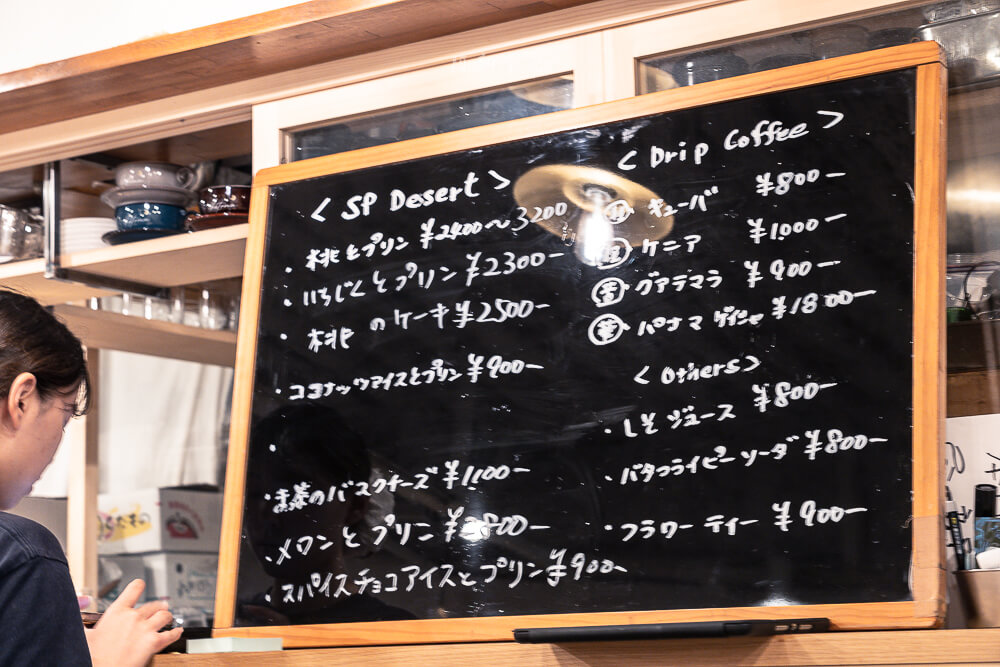 < SP Desert >
・桃とプリン ¥2400〜3200
・いちじくとプリン ¥2300-
・桃のケーキ ¥2500-
・ココナッツアイスとプリン ¥900-
・
・抹茶のバスクチーズ ¥1,100-
・メロンとプリン ¥2800-
・スパイスチョコアイスとプリン ¥900-
< Drip Coffee >
キューバ ¥800-
ケニア ¥1,000-
グアテマラ ¥900-
パナマ ゲイシャ ¥1800-
< Others >
・しそジュース ¥800-
・バタフライピーソーダ ¥800-
・フラワーティー ¥900-